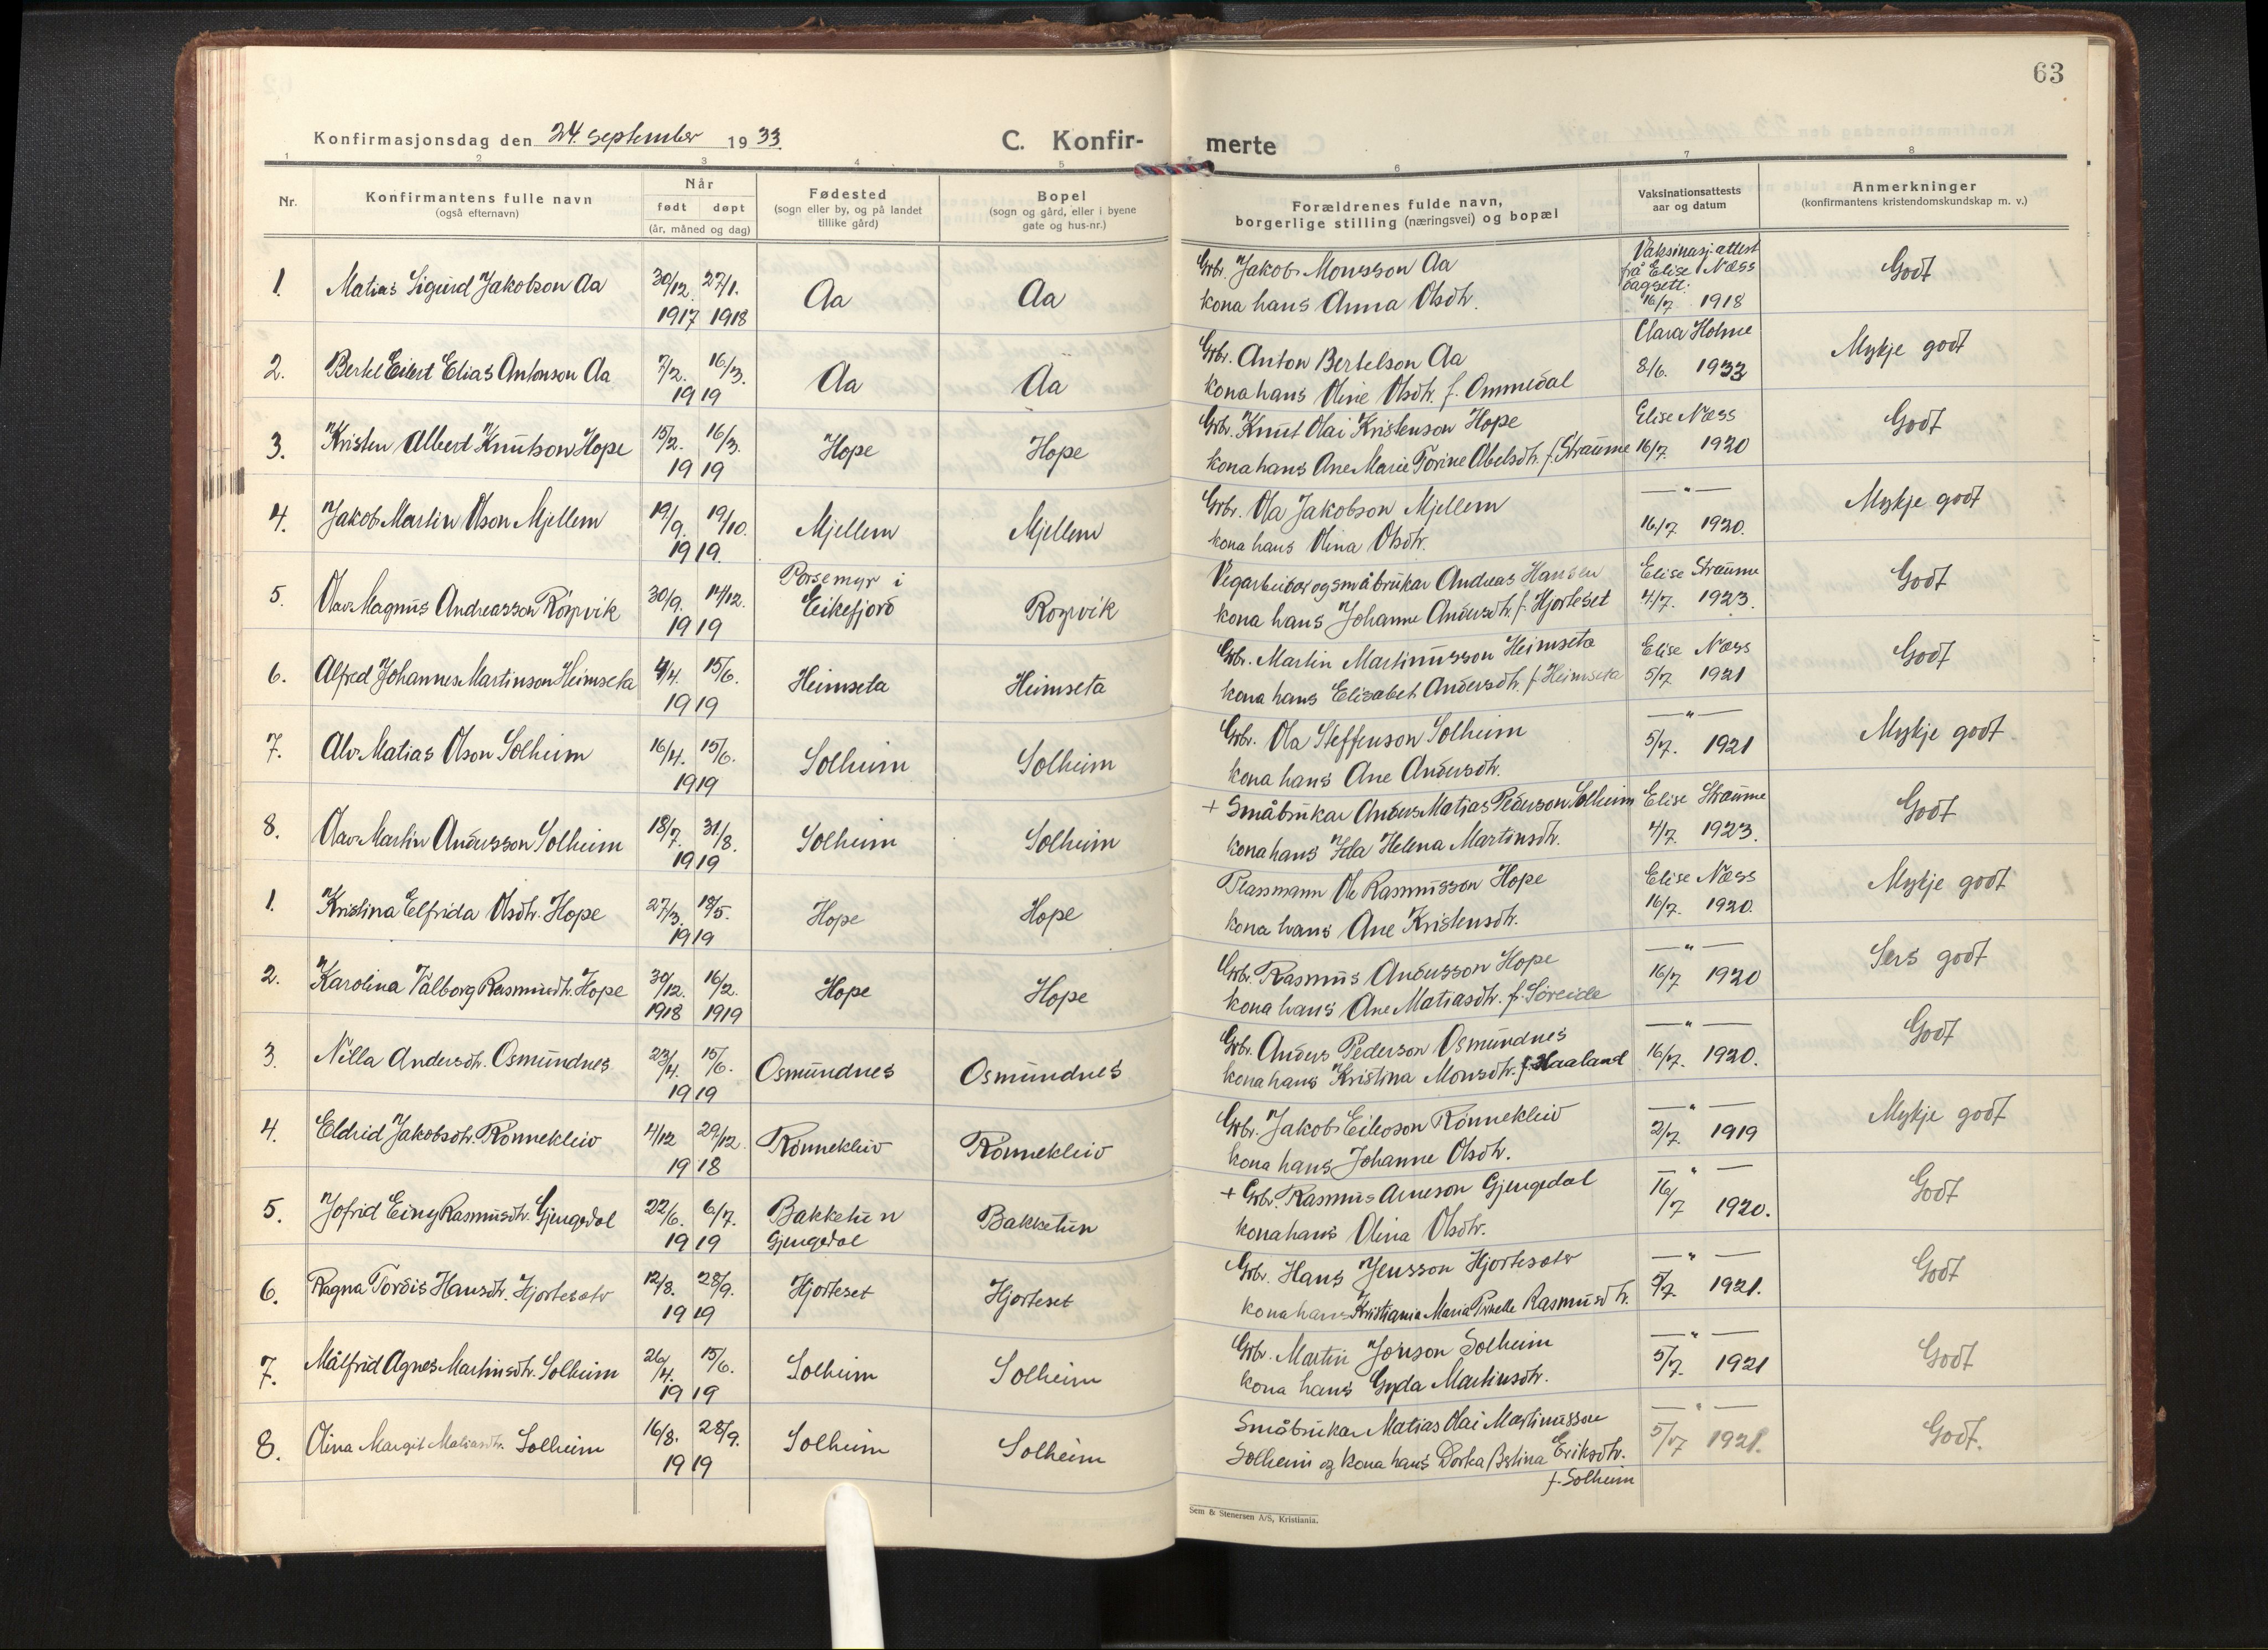 63
Konfirmasjonsdag den 24. september 1933.
C. Konfir-
merte
1 2 3 4 5 6 7 8
Nr.
Konfirmantens fulle navn
(også efternavn)
Når
født døpt
(år, måned og dag)
Fødested
(sogn eller by, og på landet
tillike gård)
Bopel
(sogn og gård, eller i byene
gate og hus-nr.)
Forældrenes fulde navn,
borgerlige stilling (næringsvei) og bopæl
Vaksinationsattests
aar og datum
Anmerkninger
(konfirmantens kristendomskundskap m. v.)
1. Matias Sigurd Jakobson Aa 30/12. 1917 27/1. 1918 Aa Aa
Grbr. Jakob Monsson Aa
kona hans Anna Olsdtr.
Vaksinasj. attest
frå Elise Næss
dagsett.
16/7 1918
Godt
2. Bertel Eilert Elias Antonson Aa 7/2. 16/3. 1919 Aa Aa
Grbr. Anton Bertelson Aa
kona hans Oline Olsdtr. f. Ommedal
Clara Holme
8/6. 1933
Mykje godt
3. Kristen Albert Knutson Hope 15/2. 16/3. 1919 Hope Hope
Grbr. Knut Olai Kristenson Hope
kona hans Ane Marie Torine Abelsdtr. f. Straume
Elise Næss
16/7 1920
Godt
4. Jakob Martin Olson Mjellem 19/9. 19/10. 1919. Mjellem Mjellem
Grbr. Ola Jakobson Mjellem
kona hans Olina Olsdtr.
— " —
16/7 1920.
Mykje godt
5. Olav Magnus Andreasson Röyrvik 30/9. 14/12. 1919
Porsemyr i
Eikefjord
Vegarbeidar og småbrukar Andreas Hansen
kona hans Johanne Andersdtr. f. Hjorteset
Elise Straume
4/7. 1923.
Godt
6. Alfred Johannes Martinson Heimseta 4/4. 15/6. 1919 Heimseta Heimseta
Grbr. Martin Martinusson Heimseta
kona hans Elisabet Andersdtr. f. Heimseta
Elise Næss
5/7 1921
Godt
7. Alv Matias Olson Solheim 16/4. 15/6. 1919 Solheim Solheim
Grbr. Ola Steffenson Solheim
kona hans Ane Andersdtr.
— " —
5/7. 1921
Mykje godt
8. Olav Martin Andersson Solheim 18/7. 31/8. 1919 Solheim Solheim
+ Småbrukar Anders Matias Pederson Solheim
kona hans Ida Helena Martinsdtr.
Elise Straume
4/7. 1923.
Godt
1. Kristina Elfrida Olsdtr. Hope 27/3. 18/5. 1919 Hope Hope
Plassmann Ole Rasmusson Hope
kona hans Ane Kristensdtr.
Elise Næss
16/7. 1920.
Mykje godt
2. Karolina Valborg Rasmusdtr. Hope 30/12. 1918 16/2. 1919 Hope Hope
Grbr. Rasmus Andersson Hope
kona hans Ane Matiasdtr. f. Söreide
— " —
16/7 1920
Sers godt
3. Nilla Andersdtr. Osmundnes 23/4. 15/6. 1919 Osmundnes Osmundnes
Grbr. Anders Pederson Osmundnes
kona hans Kristina Monsdtr. f. Haaland
— " —
16/7. 1920.
Godt
4. Eldrid Jakobsdtr. Rönnekleiv 4/12 29/12. 1918 Rönnekleiv Rönnekleiv
Grbr. Jakob Eilvson Rönnekleiv
kona hans Johanne Olsdtr.
— " —
2/7. 1919
Mykje godt
5. Jofrid Einy Rasmusdtr. Gjengedal 22/6. 6/7. 1919
Bakketun
Gjengedal
Bakketun
+ Grbr. Rasmus Arneson Gjengedal
kona hans Olina Olsdtr.
— " —
16/7 1920.
Godt
6. Ragna Tordis Hansdtr. Hjortesæter 12/8. 28/9. 1919 Hjorteset Hjorteset
Grbr. Hans Jensson Hjortesæter
kona hans Kristiania Maria Rasmusdtr.
— " —
5/7. 1921.
Godt
7. Målfrid Agnes Martinsdtr. Solheim 26/4. 15/6. 1919 Solheim Solheim
Grbr. Martin Jonson Solheim
kona hans Gyda Martinsdtr.
— " —
5/7. 1921
Godt
8. Olina Margit Matiasdtr. Solheim 16/8. 28/9. 1919 Solheim Solheim
Småbrukar Matias Olai Martinusson
Solheim og kona hans Dorka Bertina Eriksdtr.
f. Solheim
— " —
5/7 1921.
Godt.
Sem & Stenersen A/S, Kristiania.